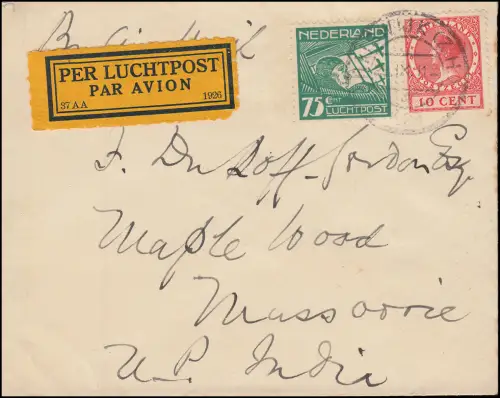 By Air Mail
PER LUCHTPOST
PAR AVION
37 AA 1926
NEDERLAND
75 CENT
LUCHTPOST
10 CENT
F. Gordon Esq.
Maple Wood
Massoorie
U.P. India